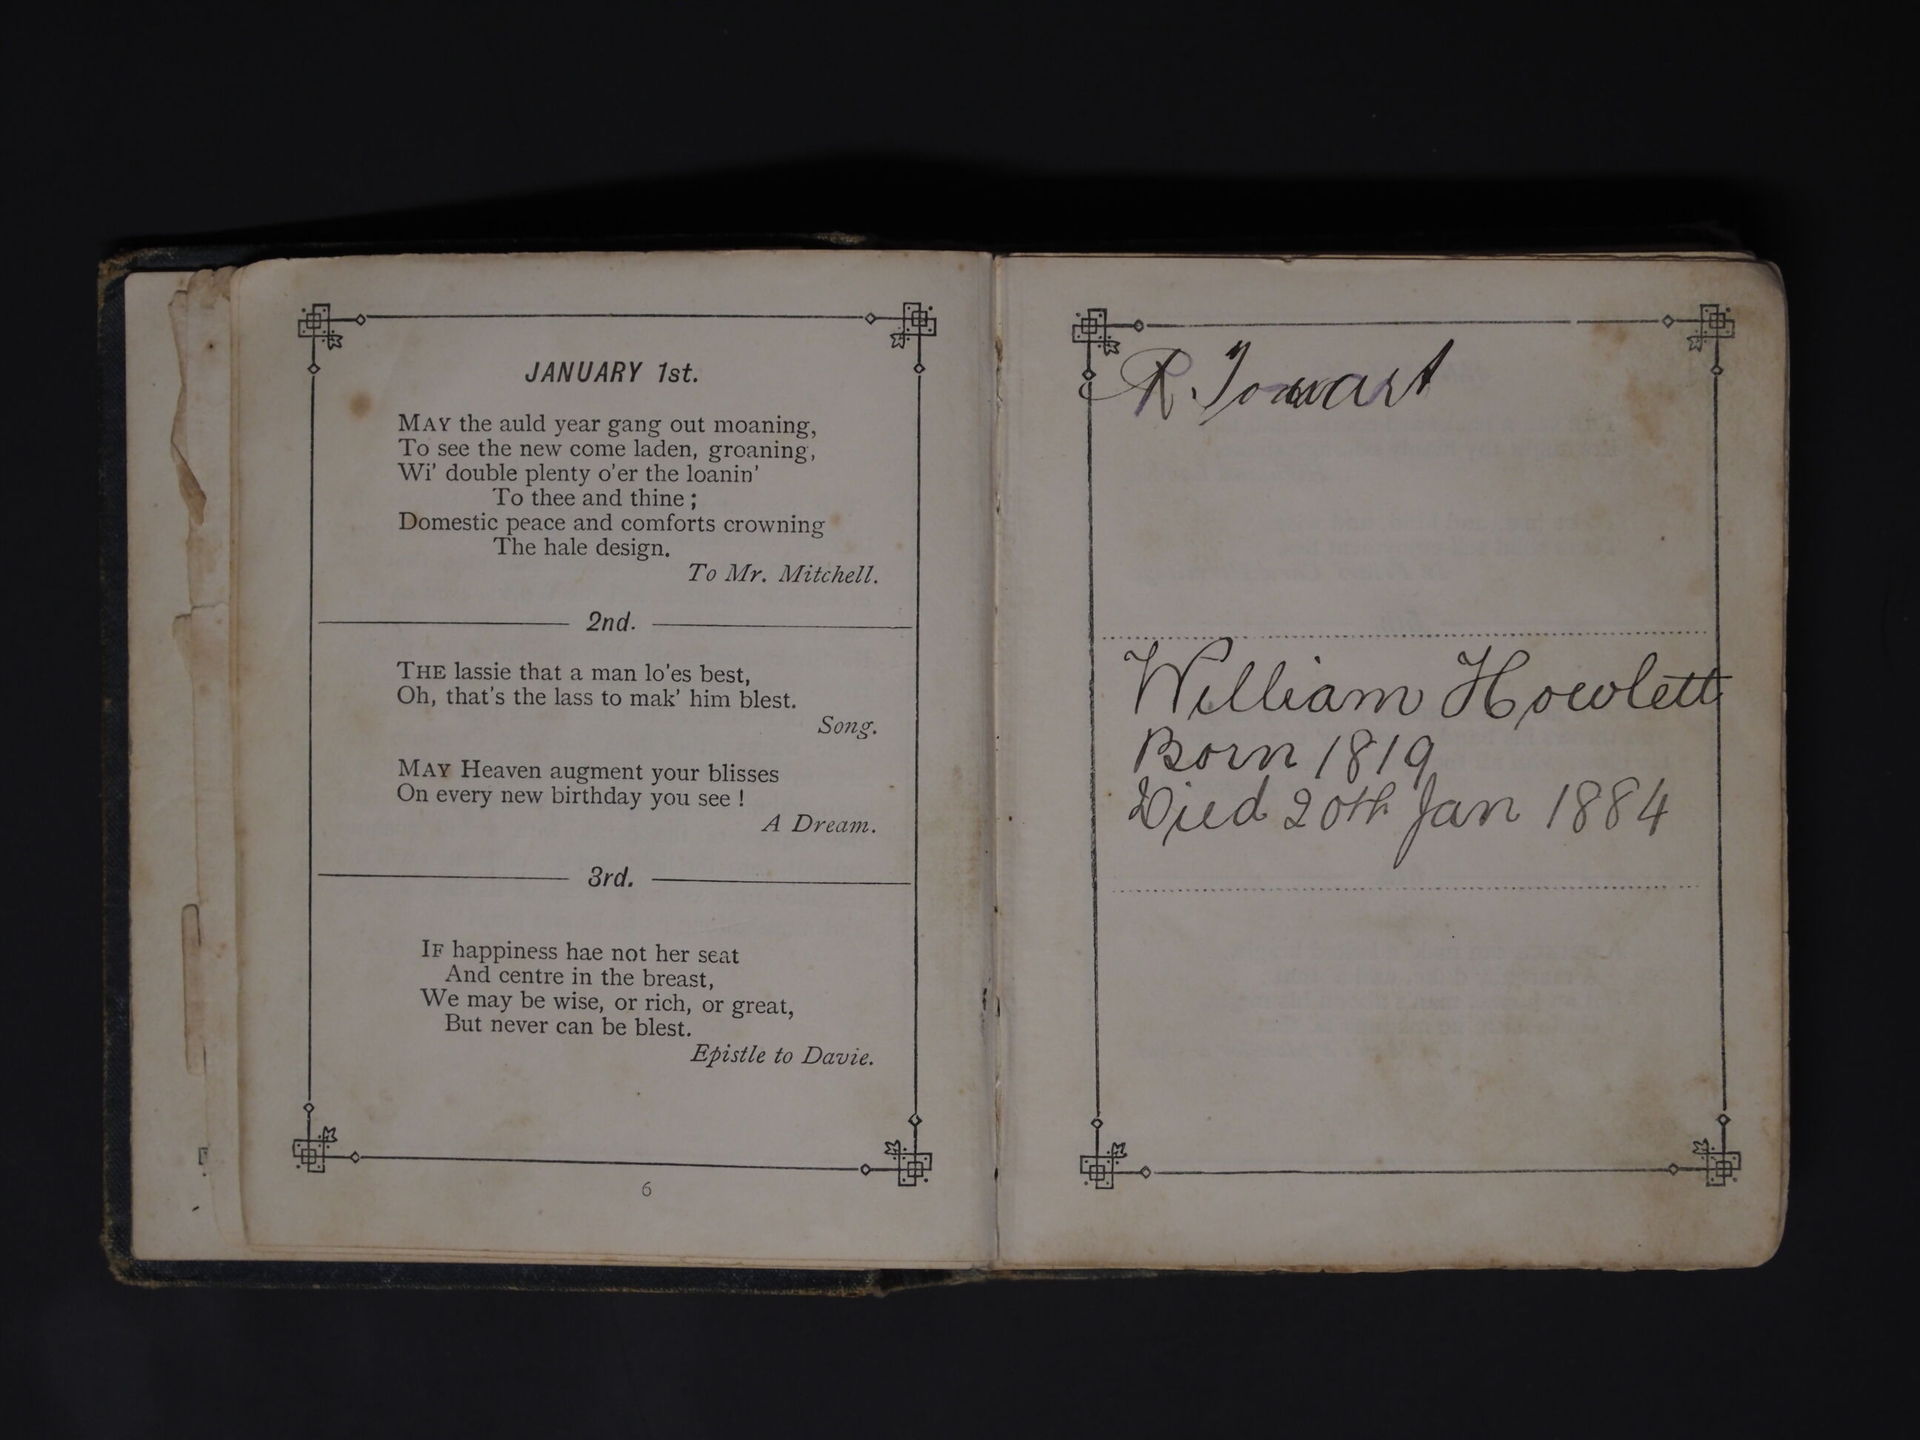 JANUARY 1st.
MAY the auld year gang out moaning,
To see the new come laden, groaning,
Wi' double plenty o'er the loanin'
To thee and thine ;
Domestic peace and comforts crowning
The hale design.
To Mr. Mitchell.
2nd.
THE lassie that a man lo'es best,
Oh, that's the lass to mak' him blest.
Song.
MAY Heaven augment your blisses
On every new birthday you see !
A Dream.
3rd.
IF happiness hae not her seat
And centre in the breast,
We may be wise, or rich, or great,
But never can be blest.
Epistle to Davie.
6
R. Towart
William Howlett
Born 1819
Died 20th Jan 1884